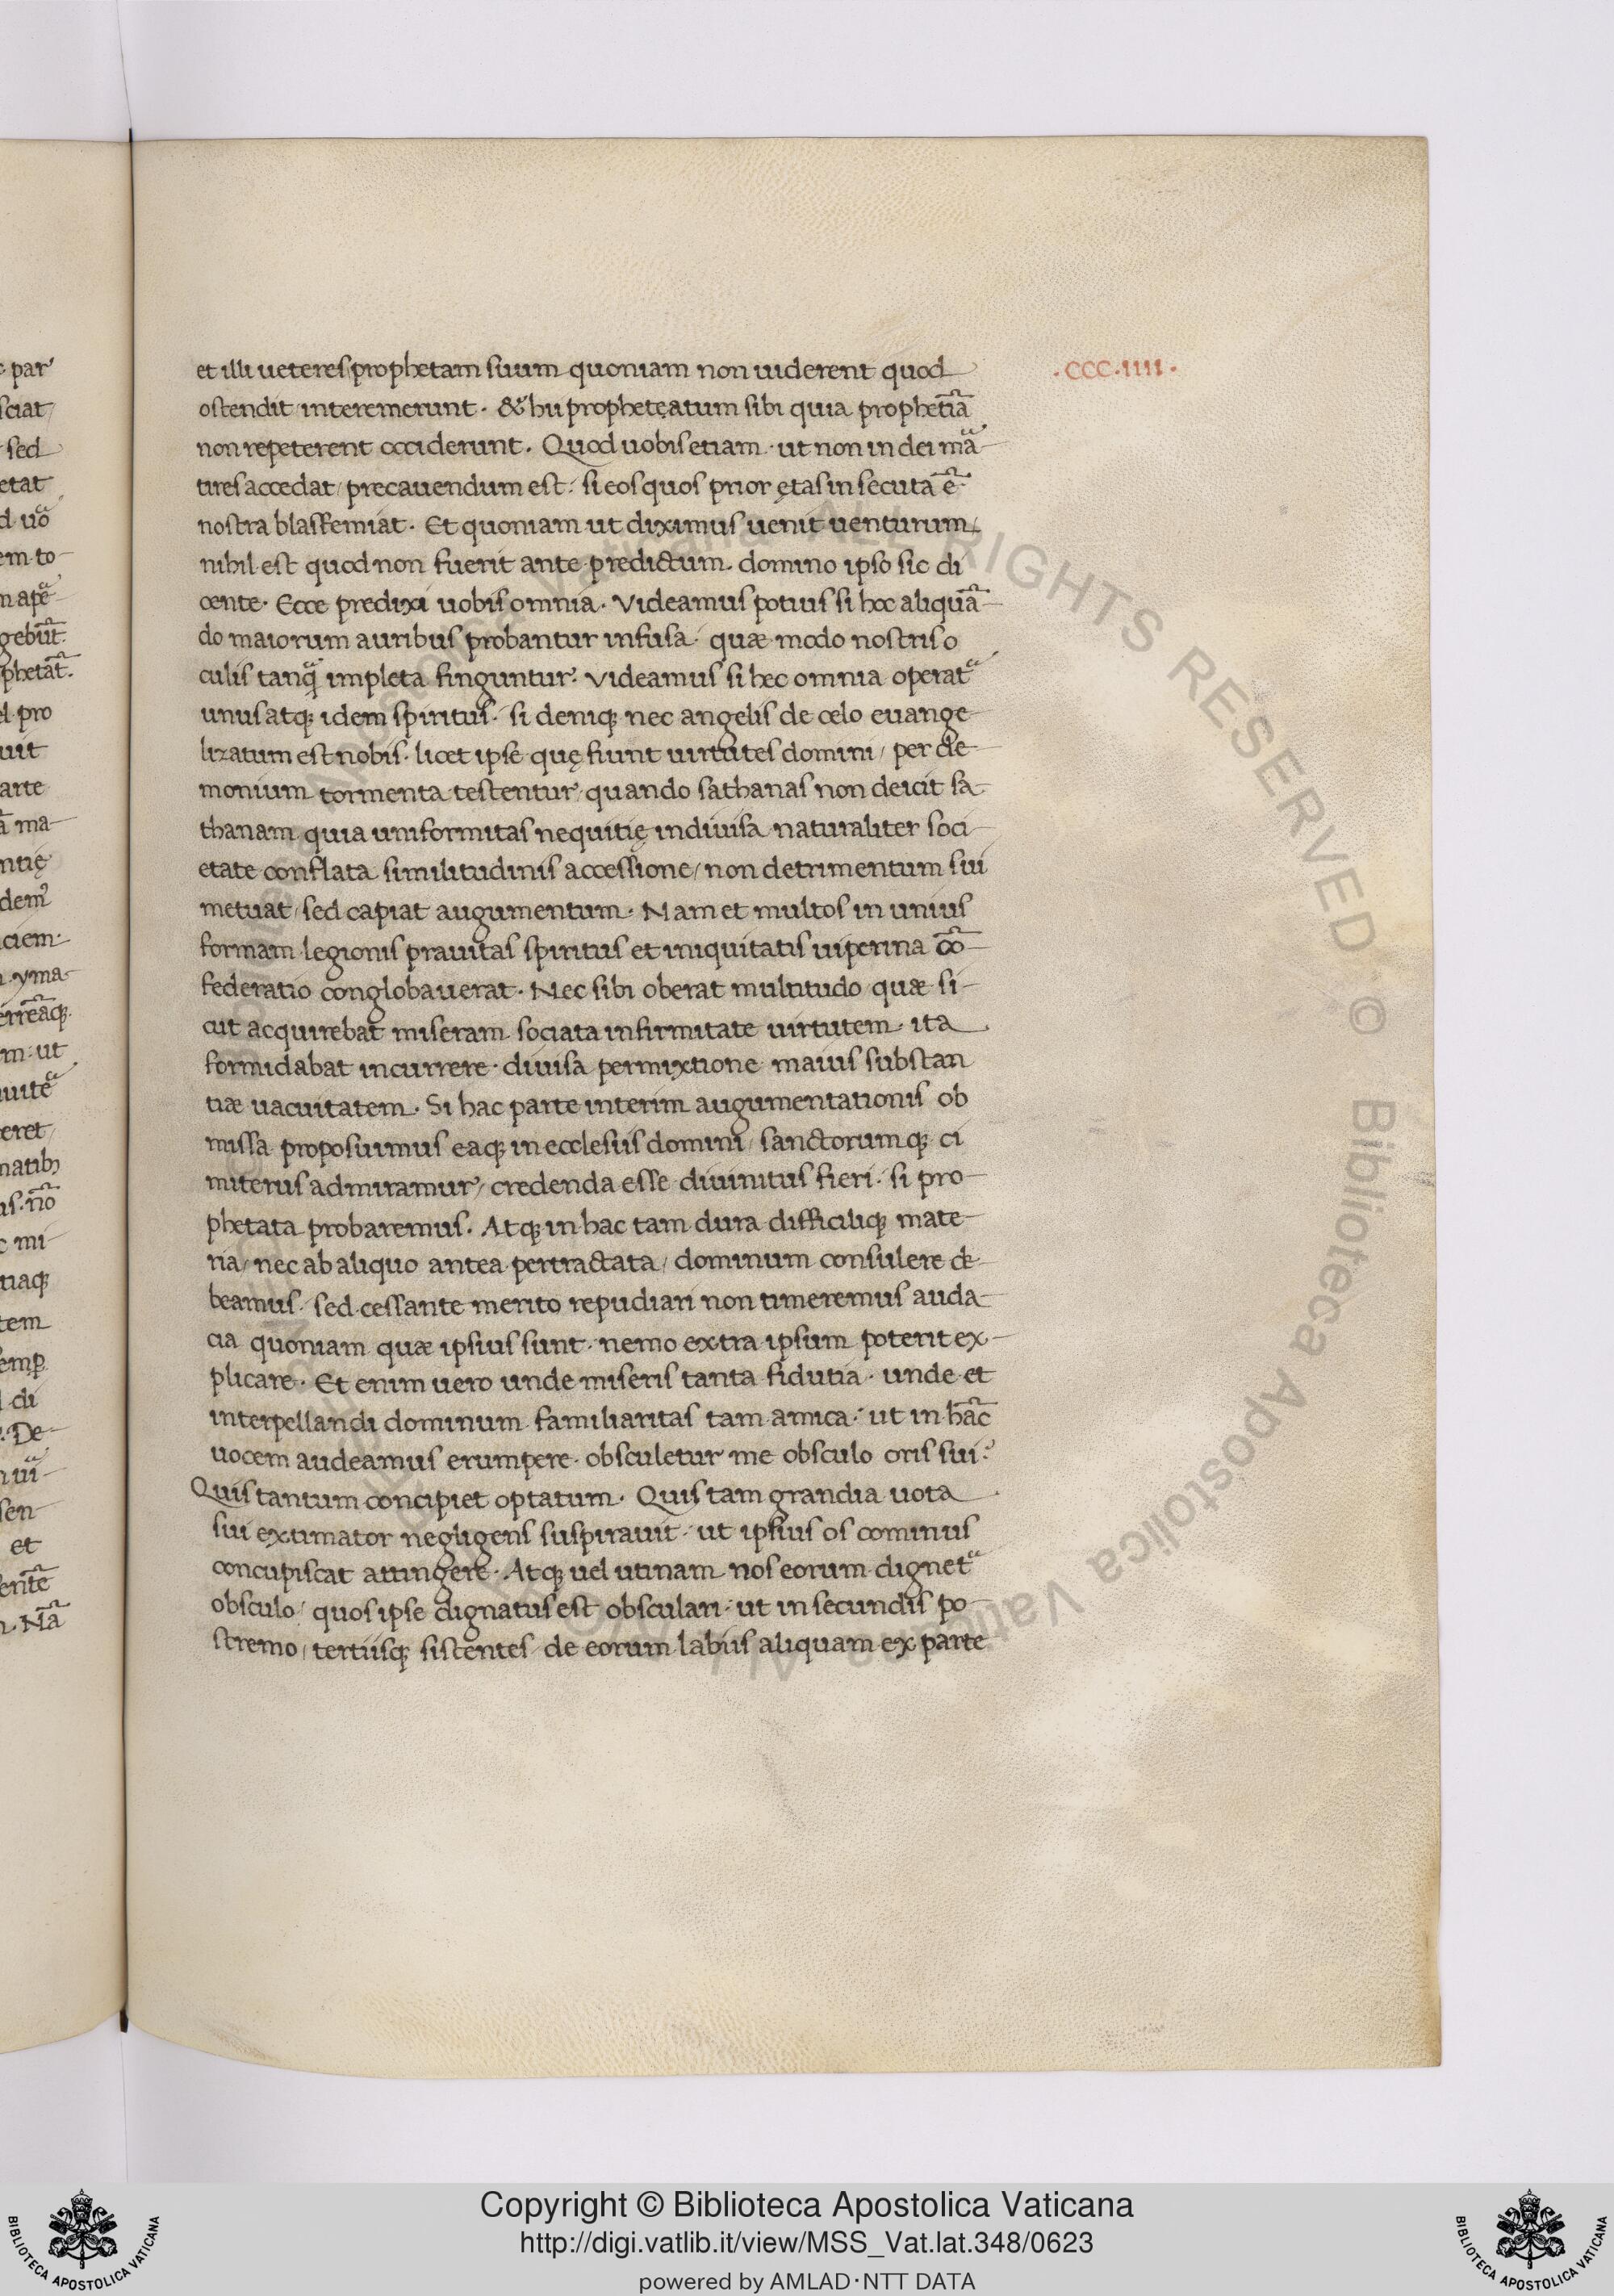 et illi ueteres prophetam suum quoniam non uiderent quod .CCC.IIII.
ostendit interemerunt. & hii prophetęatum sibi quia prophetiā
non repeterent occiderunt. Quod uobis etiam ut non in dei mā
tires accedat / precauendum est. si eos quos prior ętas insecuta ē
nostra blasfemiat. Et quoniam ut diximus uenit uenturum /
nihil est quod non fuerit ante predictum. domino ipso sic di
cente. Ecce predixi uobis omnia. Videamus potius si hoc aliquā
do maiorum auribus probantur infusa. quæ modo nostris o
culis tanq̄ impleta finguntur. Videamus si hec omnia operat̄
unus atq; idem spiritus. si deniq; nec angelis de celo euange
lizatum est nobis. licet ipse quę fiunt uirtutes domini / per de
monium tormenta testentur / quando sathanas non deicit sa
thanam quia uniformitas nequitię indiuisa naturaliter soci
etate conflata similitudinis accessione / non detrimentum sui
metuat / sed capiat augumentum. Nam et multos in unius
formam legionis prauitas spiritus et iniquitatis uiperina cō
federatio conglobauerat. Nec sibi oberat multitudo quæ si
cut acquirebat miseram sociata infirmitate uirtutem. ita
formidabat incurrere. diuisa permixtione maius substan
tiæ uacuitatem. Si hac parte interim augumentationis ob
missa proposuimus eaq; in ecclesiis domini / sanctorumq; ci
miteriis admiramur / credenda esse diuinitus fieri. si pro
phetata probaremus. Atq; in hac tam dura difficiliq; mate
ria / nec ab aliquo antea pertractata / dominum consulere de
beamus. sed cessante merito repudiari non timeremus auda
cia quoniam quæ ipsius sunt. nemo extra ipsum poterit ex
plicare. Et enim uero unde miseris tanta fidutia. unde et
interpellandi dominum familiaritas tam amica. ut in hāc
uocem audeamus erumpere. obsculetur me obsculo oris sui.
Quis tantum concipiet optatum. Quis tam grandia uota
sui extimator negligens suspirauit. ut ipsius os cominus
concupiscat attingere. Atq; uel utinam nos eorum dignet̄
obsculo / quos ipse dignatus est obsculari. ut in secundis po
stremo / tertiisq; sistentes de eorum labiis aliquam ex parte
Copyright © Biblioteca Apostolica Vaticana
http://digi.vatlib.it/view/MSS_Vat.lat.348/0623
powered by AMLAD·NTT DATA
BIBLIOTECA APOSTOLICA VATICANA
BIBLIOTECA APOSTOLICA VATICANA